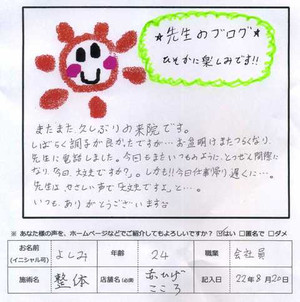 ★先生のブログ★
ひそかに楽しみです!!
またまた久しぶりの来院です。
しばらく調子が良かったですが…お盆明けまたつらくなり、
先生に電話しました。今回もまたいつものように、とつぜん間際に
なり、今日、大丈夫ですか?。しかも!!今日仕事帰り遅くに…。
先生は、やさしい声で「大丈夫ですよ」と…。
いつも、ありがとうございます
※ あなた様の声を、ホームページなどでご紹介してもよろしいですか? はい □匿名で □ダメ
お名前
(イニシャル可)
よしみ
年齢
24
職業
会社員
施術名
整体
店舗名(必須)
赤ひげ
こころ
記入日
22年8月20日